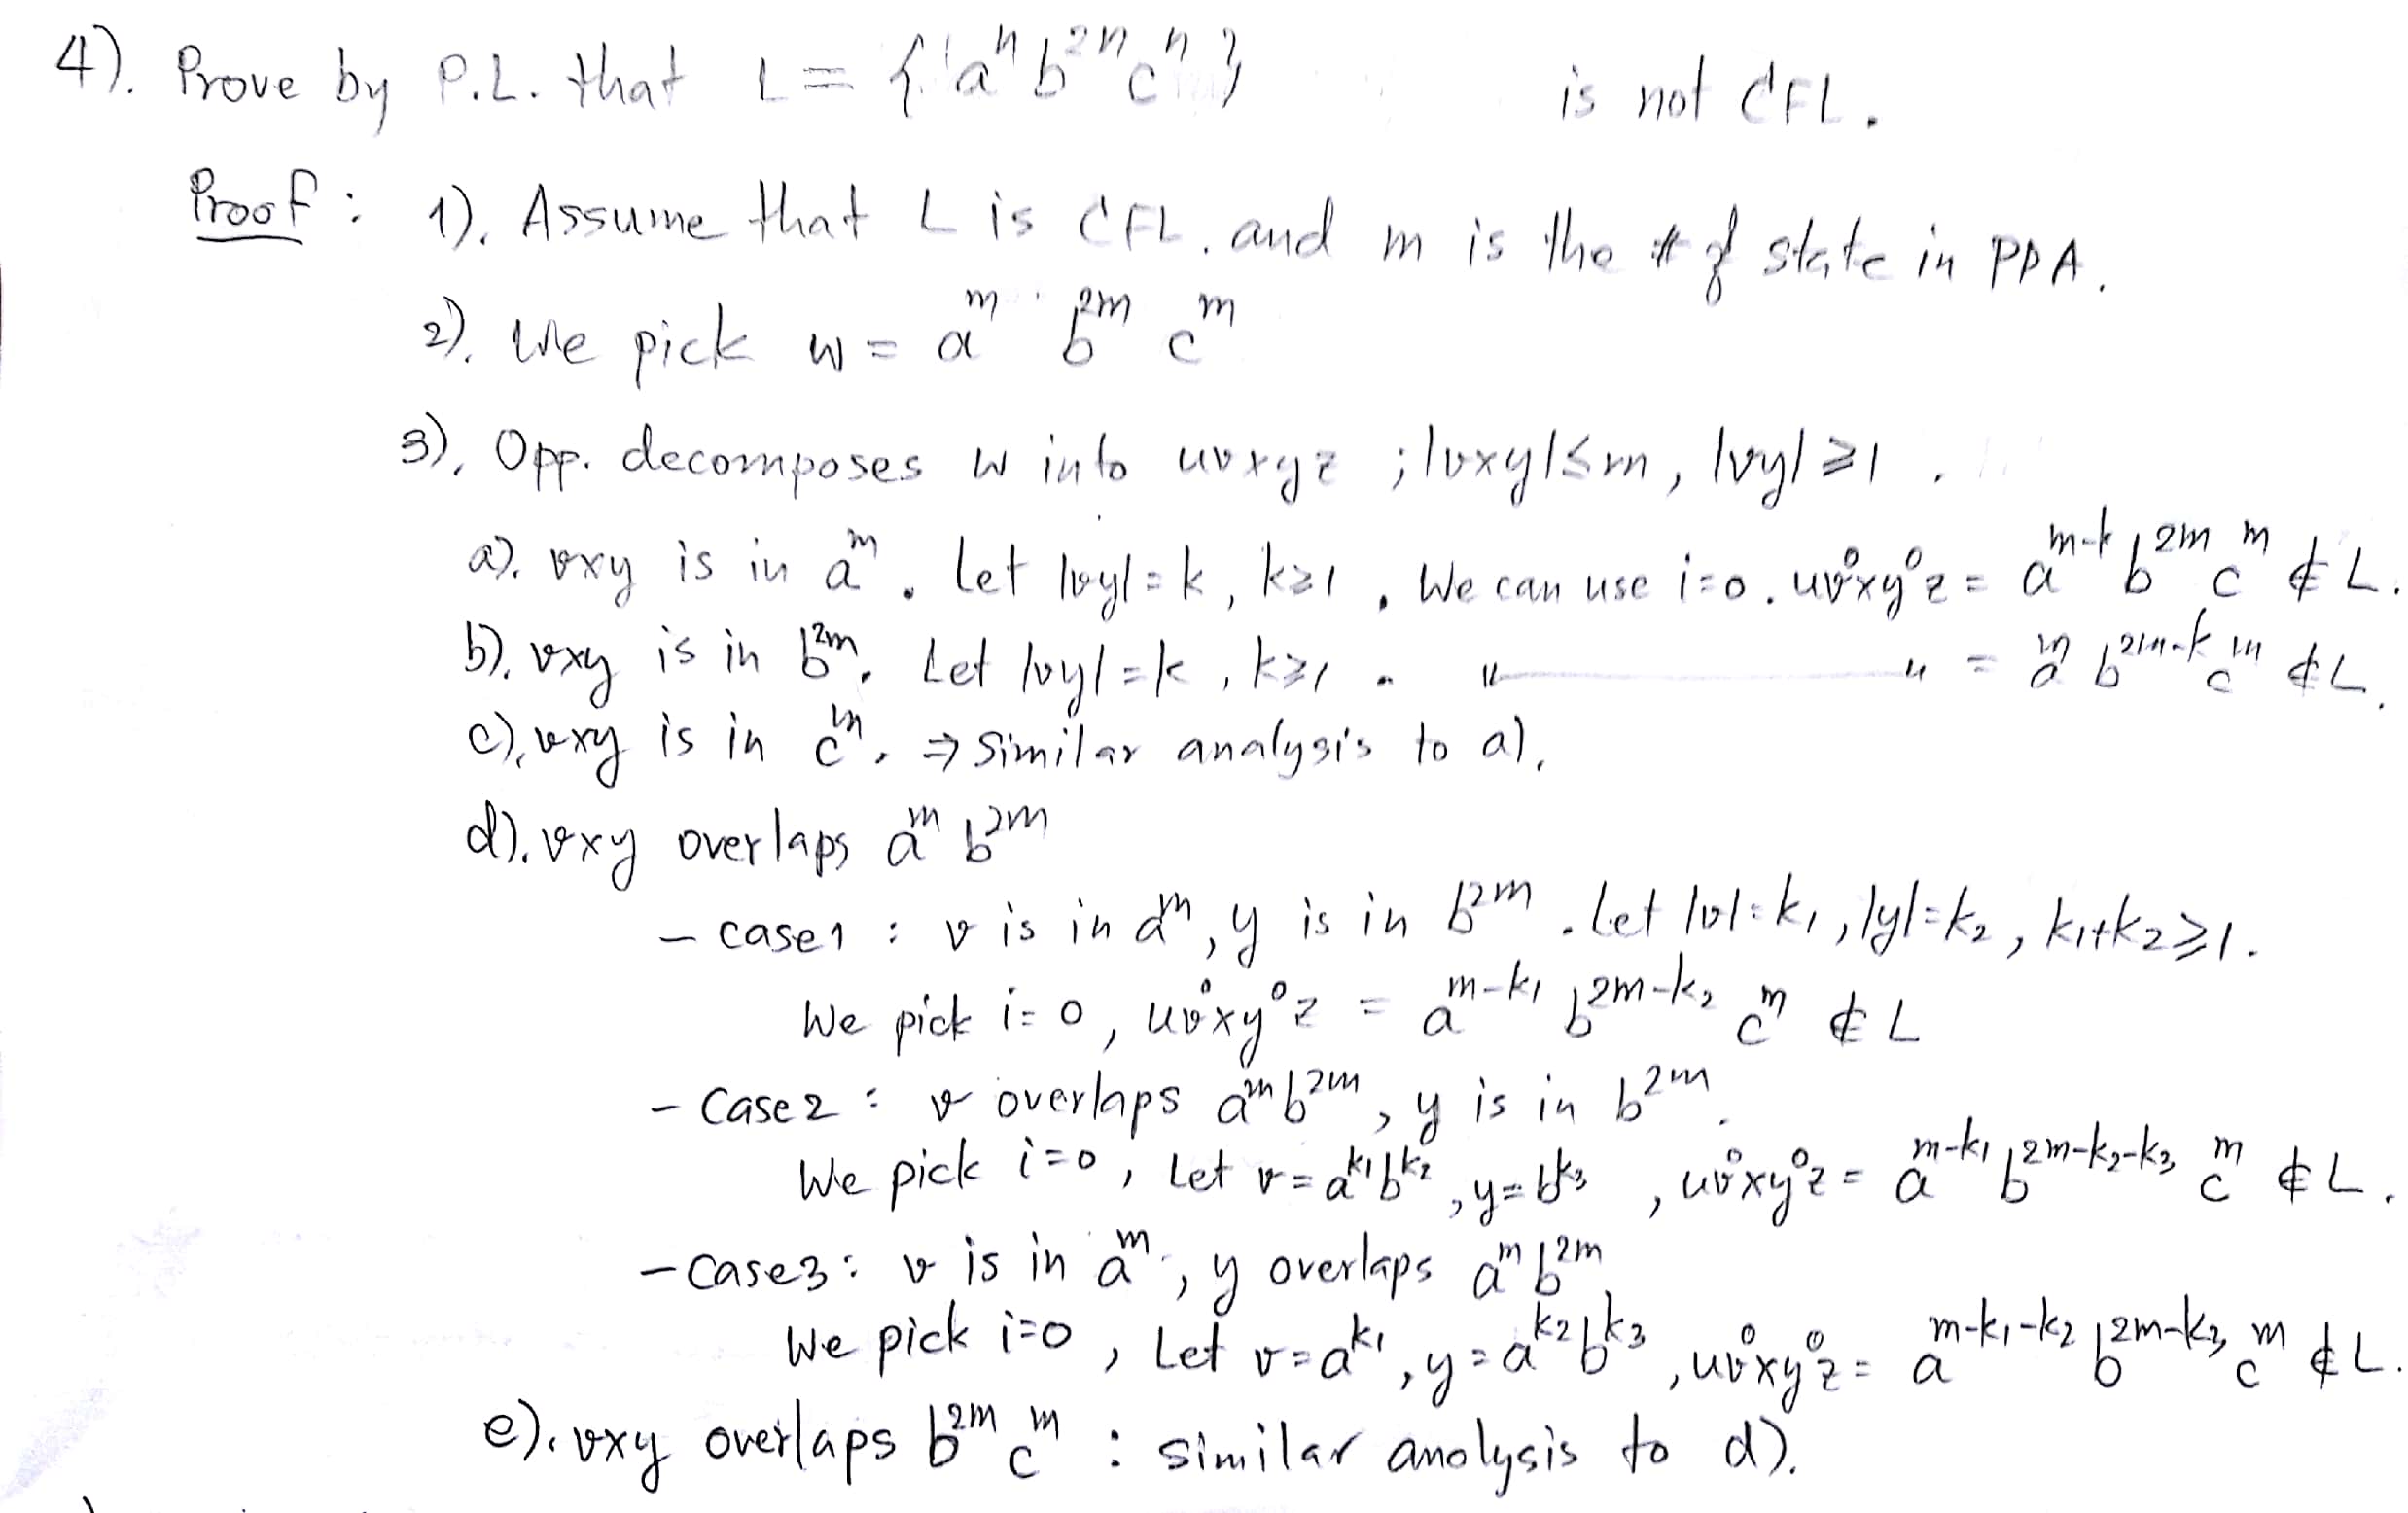 4). Prove by P.L. that L = {aⁿb²ⁿcⁿ} is not CFL.
Proof: 1). Assume that L is CFL. and m is the # of state in PDA.
2). We pick w = aᵐ b²ᵐ cᵐ
3). Opp. decomposes w into uvxyz ; |vxy| ≤ m, |vy| ≥ 1.
a). vxy is in aᵐ. Let |vy| = k, k≥1. We can use i=0. uv⁰xy⁰z = aᵐ⁻ᵏ b²ᵐ cᵐ ∉ L.
b). vxy is in b²ᵐ. Let |vy| = k, k≥1. " ——— " = aᵐ b²ᵐ⁻ᵏ cᵐ ∉ L.
c). vxy is in cᵐ. ⇒ Similar analysis to a).
d). vxy overlaps aᵐ b²ᵐ
– case1 : v is in aᵐ, y is in b²ᵐ. Let |v|=k₁, |y|=k₂, k₁+k₂ ≥ 1.
We pick i=0, uv⁰xy⁰z = a^(m-k₁) b^(2m-k₂) cᵐ ∉ L
– Case2 : v overlaps aᵐb²ᵐ, y is in b²ᵐ.
We pick i=0, Let v = a^k₁ b^k₂, y = b^k₃, uv⁰xy⁰z = a^(m-k₁) b^(2m-k₂-k₃) cᵐ ∉ L.
– Case3 : v is in aᵐ, y overlaps aᵐ b²ᵐ.
We pick i=0, Let v = a^k₁, y = a^k₂ b^k₃, uv⁰xy⁰z = a^(m-k₁-k₂) b^(2m-k₃) cᵐ ∉ L.
e). vxy overlaps b²ᵐ cᵐ : similar analysis to d).